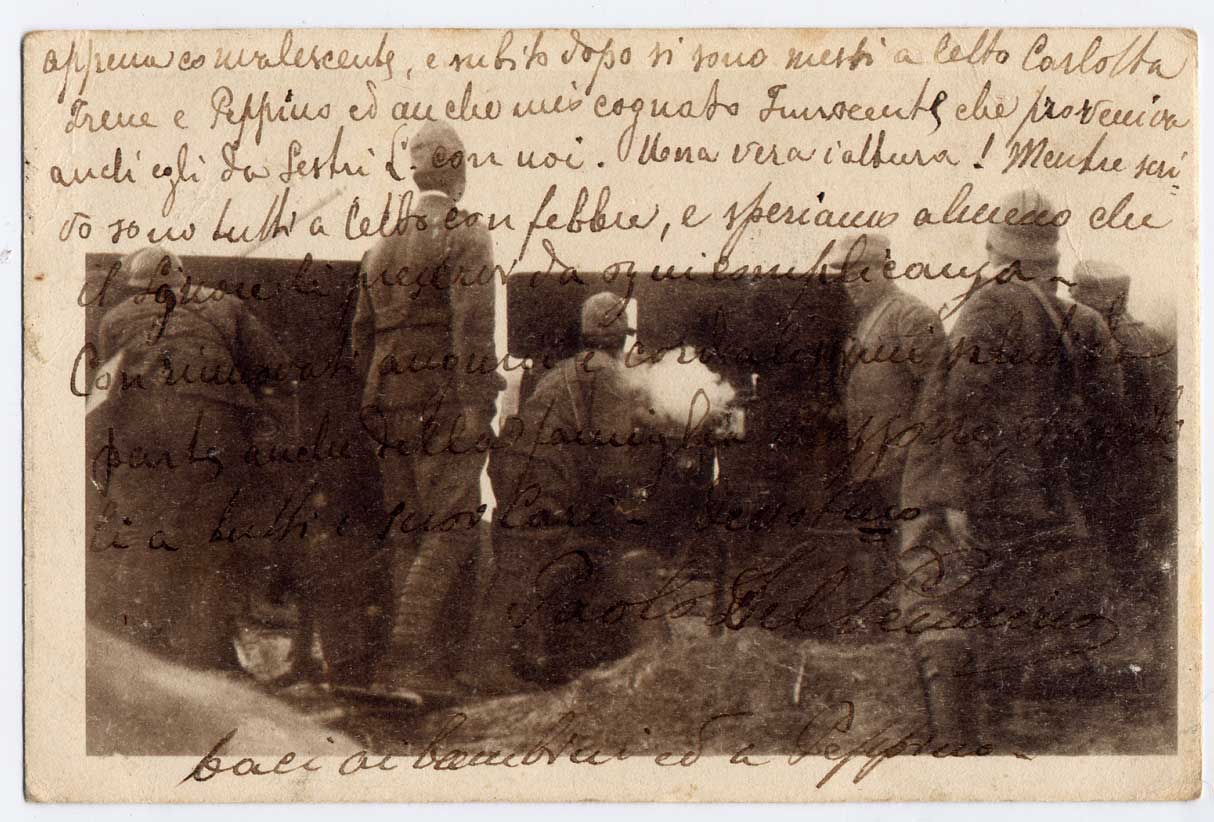 appena convalescente, e subito dopo si sono messi a letto Carlotta
Irene e Peppino ed anche mio cognato Innocente che proveniva
anch'egli da Sestri L. con noi. Una vera iattura! Mentre scri-
vo sono tutti a letto con febbre, e speriamo almeno che
il Signore li preservi da ogni complicanza -
Con rinnovati auguri e cordialissimi saluti da
parte anche della famiglia
li a tutti i suoi cari - devotmo
Paolo Del
baci ai bambini ed a Peppino -